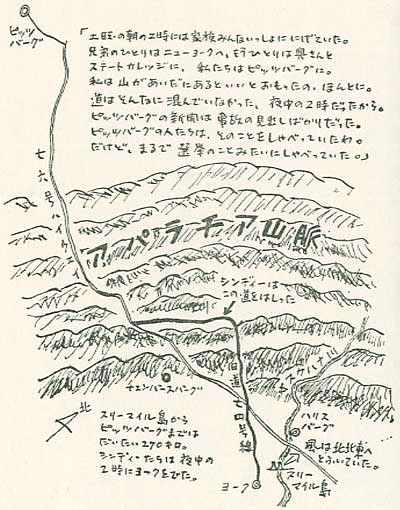 ピッツ
バーグ
「土曜の朝の2時には家族みんないっしょににげていた。
兄弟のひとりはニューヨークへ、もうひとりは奥さんと
ステートカレッジに、私たちはピッツバーグに。
私は山があいだにあるといいとおもったの、ほんとに。
道はそんなに混んでいなかった、夜中の2時だったから。
ピッツバーグの新聞は事故の見出しばかりだった。
ピッツバーグの人たちは、そのことをしゃべっていたわ。
だけど、まるで選挙のことみたいにしゃべっていた。」
七六号ハイウェイ
アパラチア山脈
シンディーは
この道をはしった
チェンバースバーグ
旧道七四号線
サスケハナ
北
スリーマイル島から
ピッツバーグまでは
だいたい270キロ。
シンディーたちは夜中の
2時にヨークをでた。
ハリス
バーグ
風は北北東へ
とふいていた。
スリー
マイル島
ヨーク